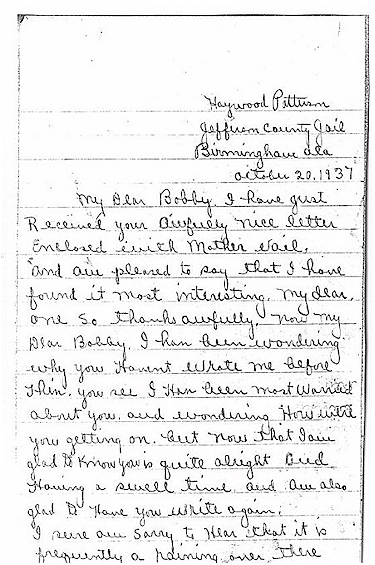 Haywood Patterson
Jefferson County Jail
Birmingham ala
october 20, 1937
My Dear Bobby, I have just
Received your awfully nice letter
Enclosed with Mother Vail,
and am pleased to say that I have
found it most interesting, my dear,
one so thanks awfully. now my
Dear Bobby, I han been wondering
why you Havent wrote me before
then, you see I Han been most warried
about you, and wondering How were
you getting on, but now that I am
glad to Know you is quite alright and
Having a swell time and am also
glad to Have you write again,
I sure am sorry to Hear that it is
frequently a raining over there